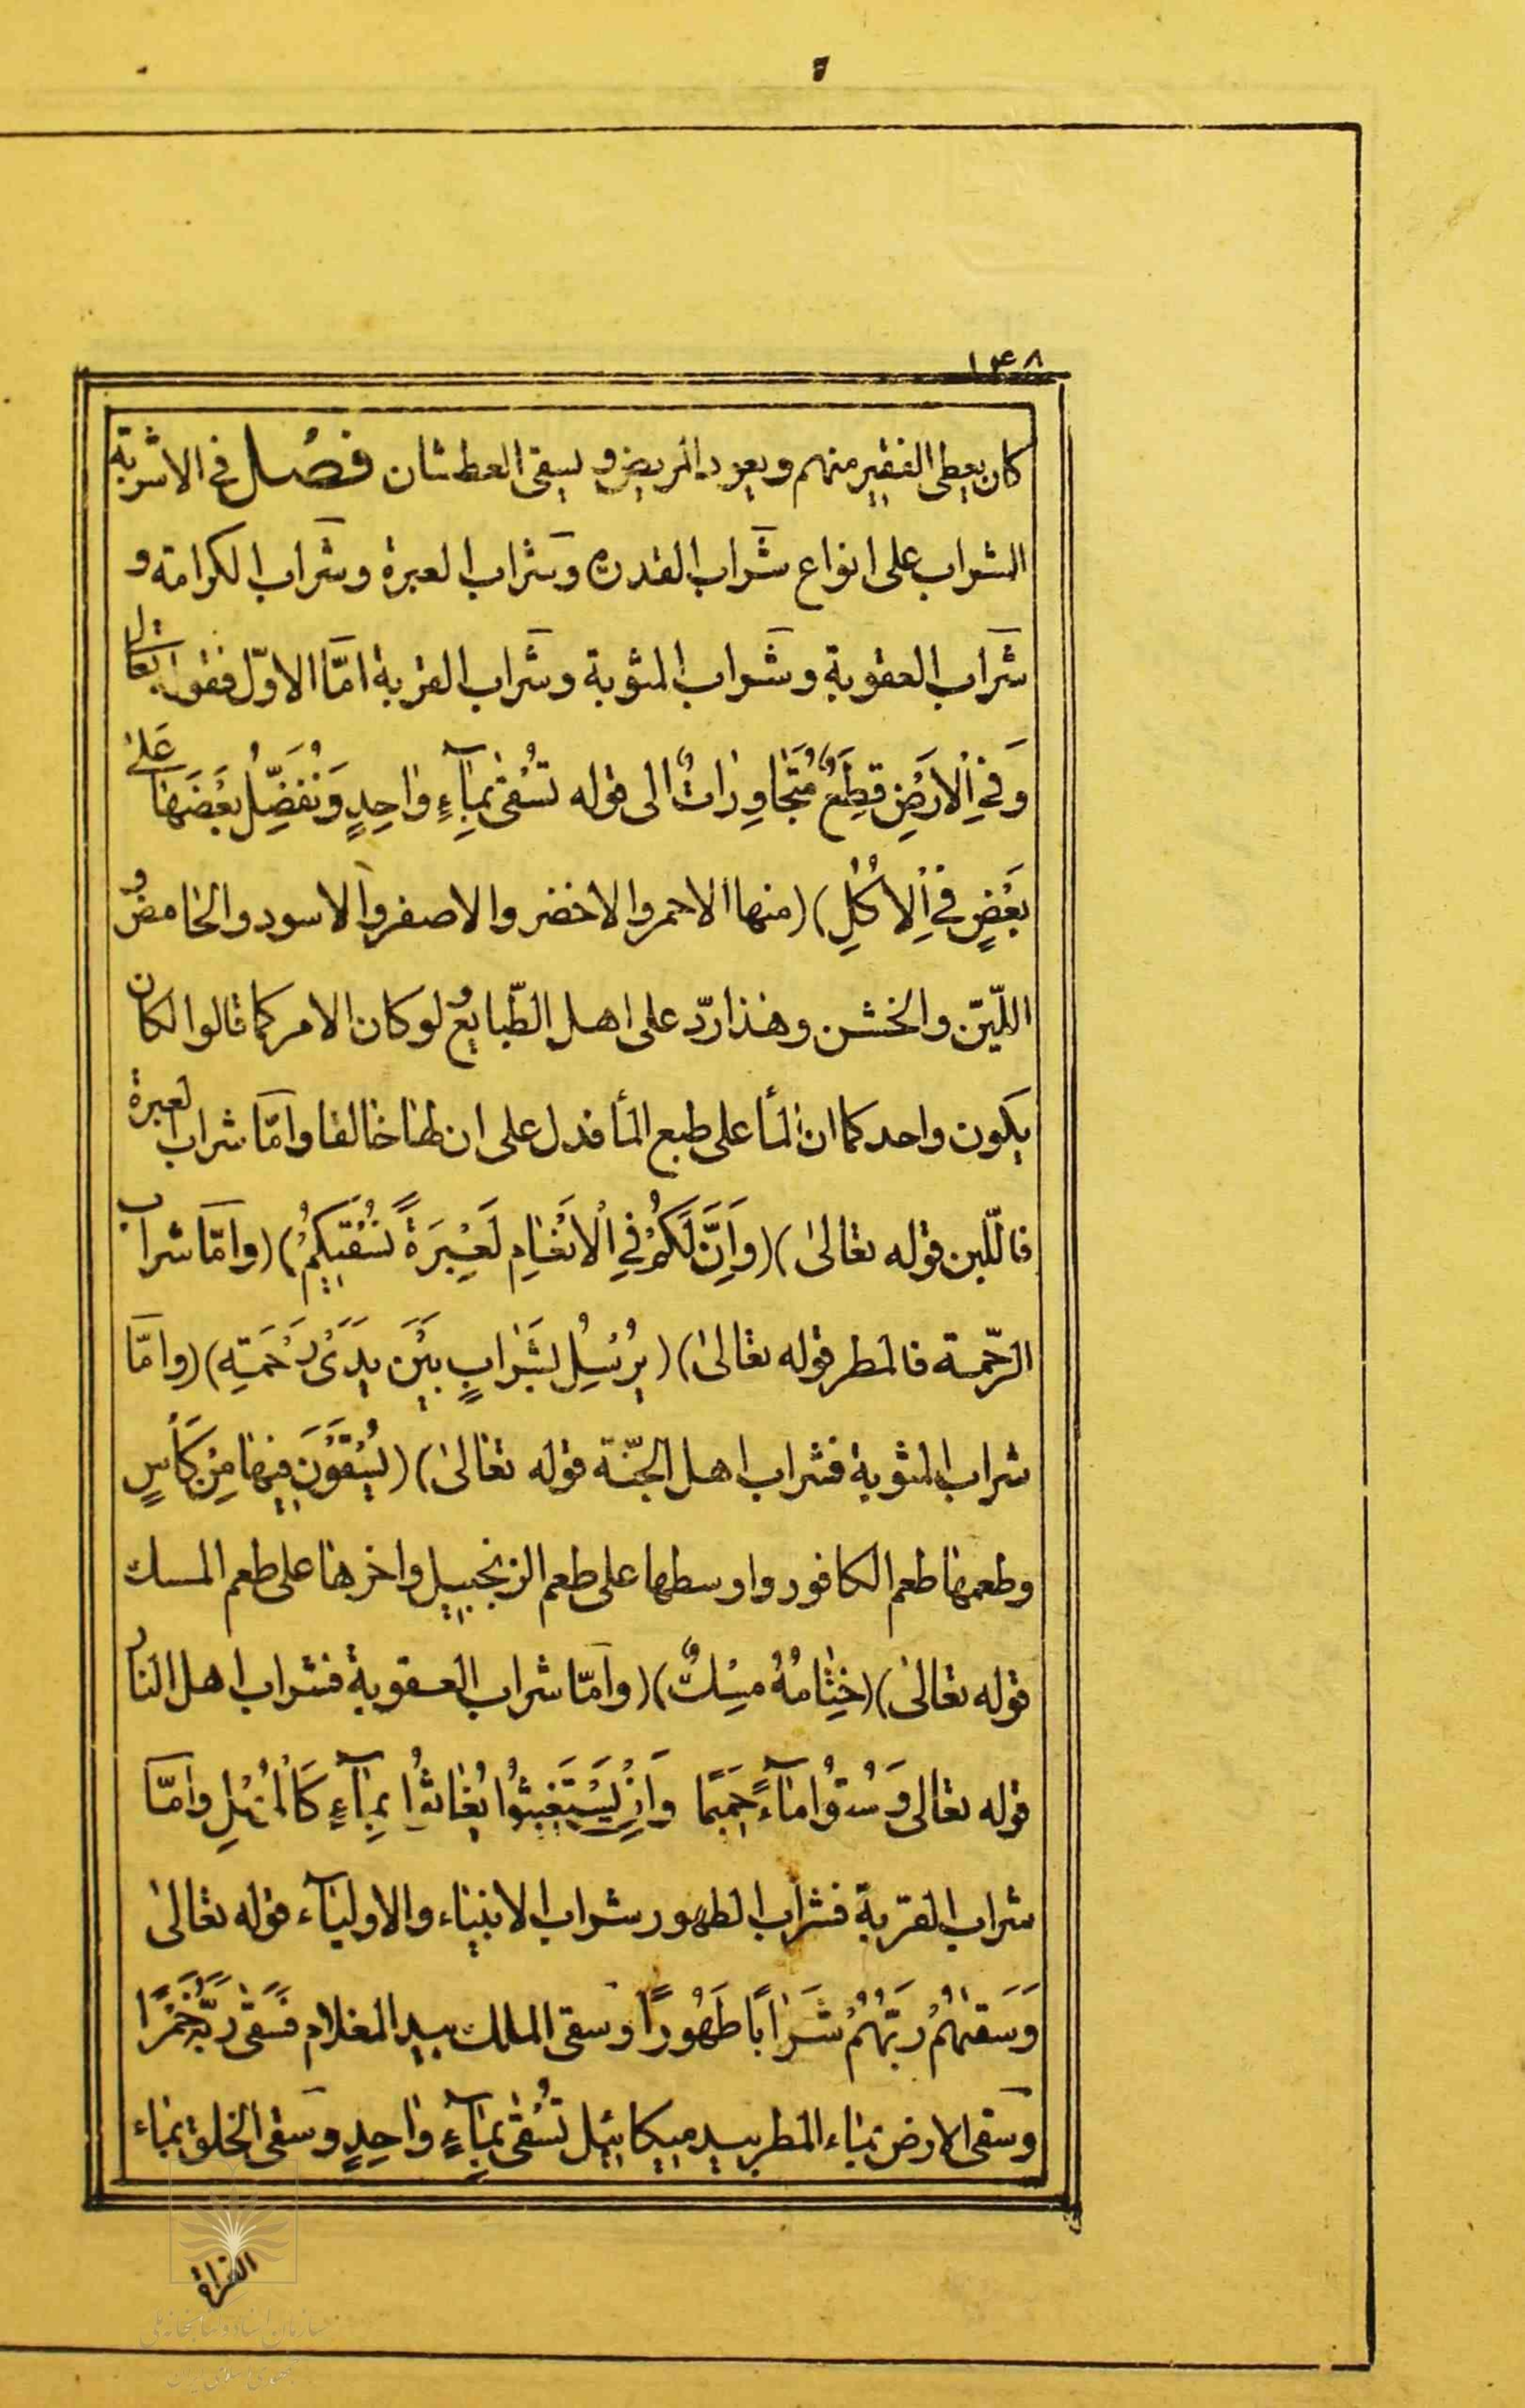 ١٤٨
كان يعطى الفقير منهم ويعود المريض و يسقى العطشان فصل فى الاشربة
الشراب على انواع شراب القدرة وشراب العبرة وشراب الكرامة و
شراب العقوبة وشراب المثوبة وشراب القربة امّا الاوّل فقوله تعالى
وَفِي اْلاَرْضِ قِطَعٌ مُتَجٰاوِرٰاتٌ الى قوله تُسْقىٰ بِمٰآءٍ وٰاحِدٍ وَنُفَضِّلُ بَعْضَهٰا عَلىٰ
بَعْضٍ فِي اْلاُكُلِ) (منها الاحمر والاخضر والاصفر والاسود والحٰامض و
اللّيّن والخشن وهٰذا ردّ على اهل الطّبايع و لو كان الامر كما قالوا لكان
يكون واحد كما ان المأ على طبع المأ فدل على ان لهٰا خٰالقا وامّا شراب العبرة
فاللّبن قوله تعالىٰ) (وَاِنَّ لَكُمْ فِي اْلاَنْعٰامِ لَعِبْرَةً نُسْقيكُمْ) (وامّا شراب
الرّحمة فالمطر قوله تعالىٰ) (يُرْسِلُ بشَرٰابٍ بَيْنَ يَدَىْ رَحْمَتِهِ) (وامّا
شراب المثوبة فشراب اهل الجنّة قوله تعالىٰ) (يُسْقَوْنَ فيهٰا مِنْ كَأْسٍ
وطعمهٰا طعم الكافور واوسطها على طعم الزنجبيل واخرهٰا على طعم المسك
قوله تعالىٰ) (خِتٰامُهُ مِسْكٌ) (وامّا شراب العقوبة فشراب اهل النار
قوله تعالى وَسُقُوا مٰآءً حَميمًا وَاِنْ يَسْتَغيثُوا يُغٰاثُوا بِمٰآءٍ كَالْمُهْلِ وامّا
شراب القربة فشراب الطهور شراب الانبيٰاء والاوليٰآء قوله تعالىٰ
وَسَقيٰهُمْ رَبُّهُمْ شَرٰابًا طَهُورًا وسقى الملك بيد الغلام فَسَقىٰ رَبَّهُ خَمْرًا
وسقى الارض بمٰاء المطر بيد ميكائيل تُسْقىٰ بِمٰآءٍ وٰاحِدٍ وسقى الخلق بمٰاء
الفرات
سازمان اسناد و کتابخانه ملی
جمهوری اسلامی ایران